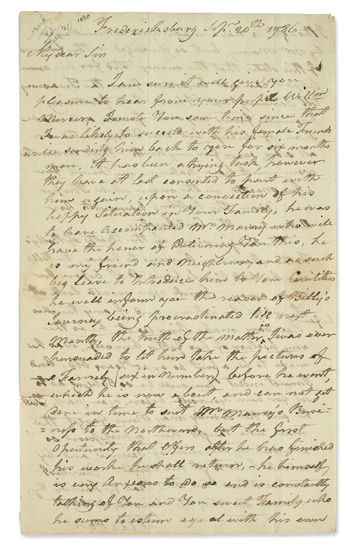 Fredericksburg Apl 20th 1786
My dear Sir
I am sure it will give you
pleasure to hear from your pupil Willm
Mercer. I wrote You some time since that
I was likely to succeed with his female friends
in sending him back to you for six months
more. It has been a trying task, however
they have at last consented to part with
him again, upon a conviction of his
happy Situation in Your Family, he was
to have Accompanied Mr. Murray who will
have the honor of Delivering You this, he
is my friend and Neighbour and as such
beg leave to Introduce him to Your Civilities
he will inform you the reason of Billy's
Journey being procrastinated till next
Month, the truth of the matter is I was over
persuaded to let him take the pictures of
a Family six in Number, before he went,
which he is now about and can not get
done in time to suit Mr. Murray's Busi-
ness to the Northward, but the first
Opertunity that Offers after he has finished
his work he shall return, he himself
is very Anxeous to do so and is constantly
talking of You and Your sweet Family who
he seems to esteem equal with his own